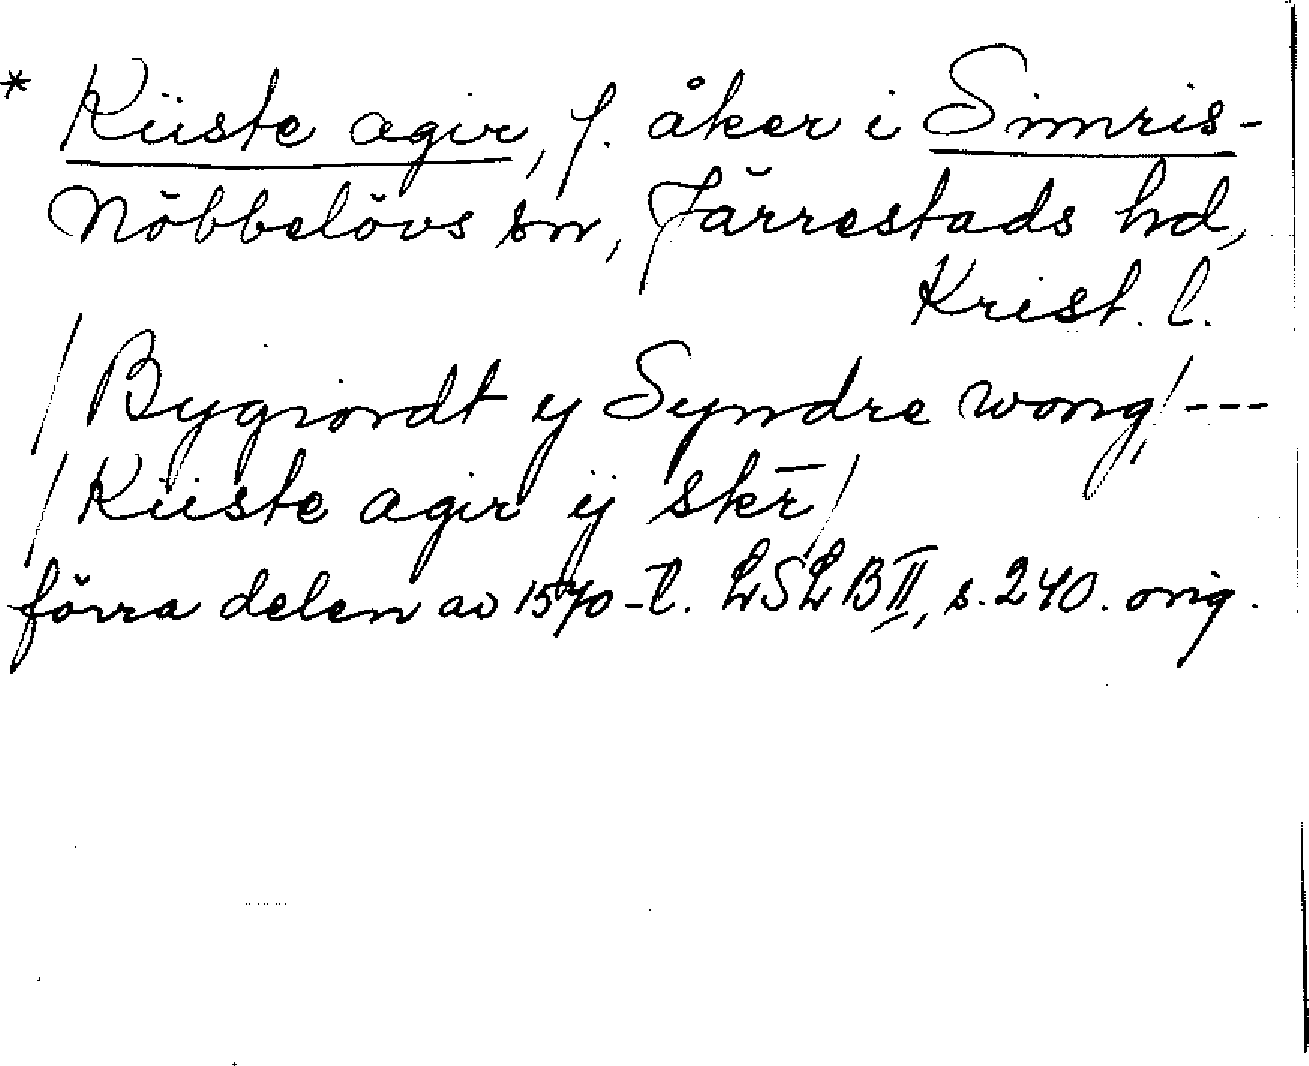 * Kiiste agir, f. åker i Simris-
Nöbbelövs sn, Järrestads hd,
Krist. l.
/Bygiordt y Syndre wong/, ---
/Kiiste agir ij skr̄/
förra delen av 1570-t. LSLB II, s. 240. orig.